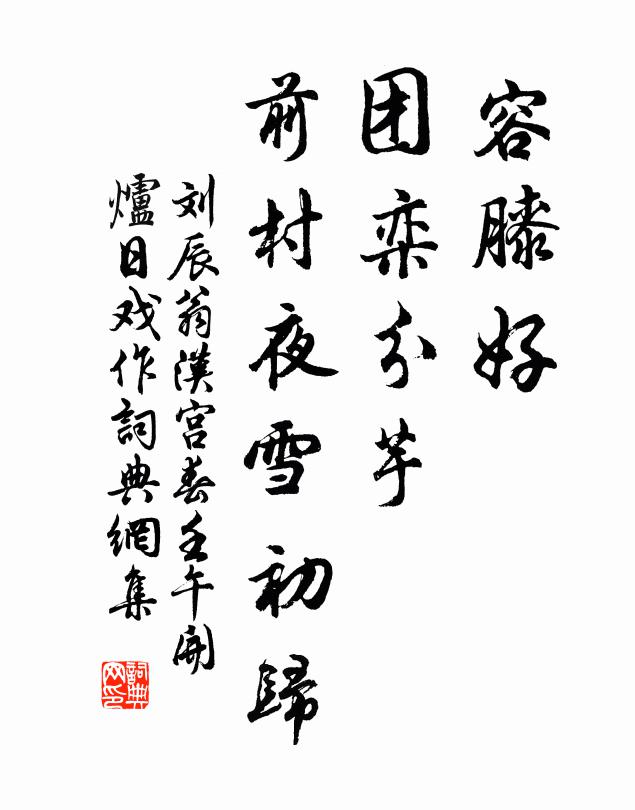 容膝好
团栾分芋
前村夜雪初歸
刘辰翁漢宫春壬午開
爐日戏作詞典網集
詞典网印